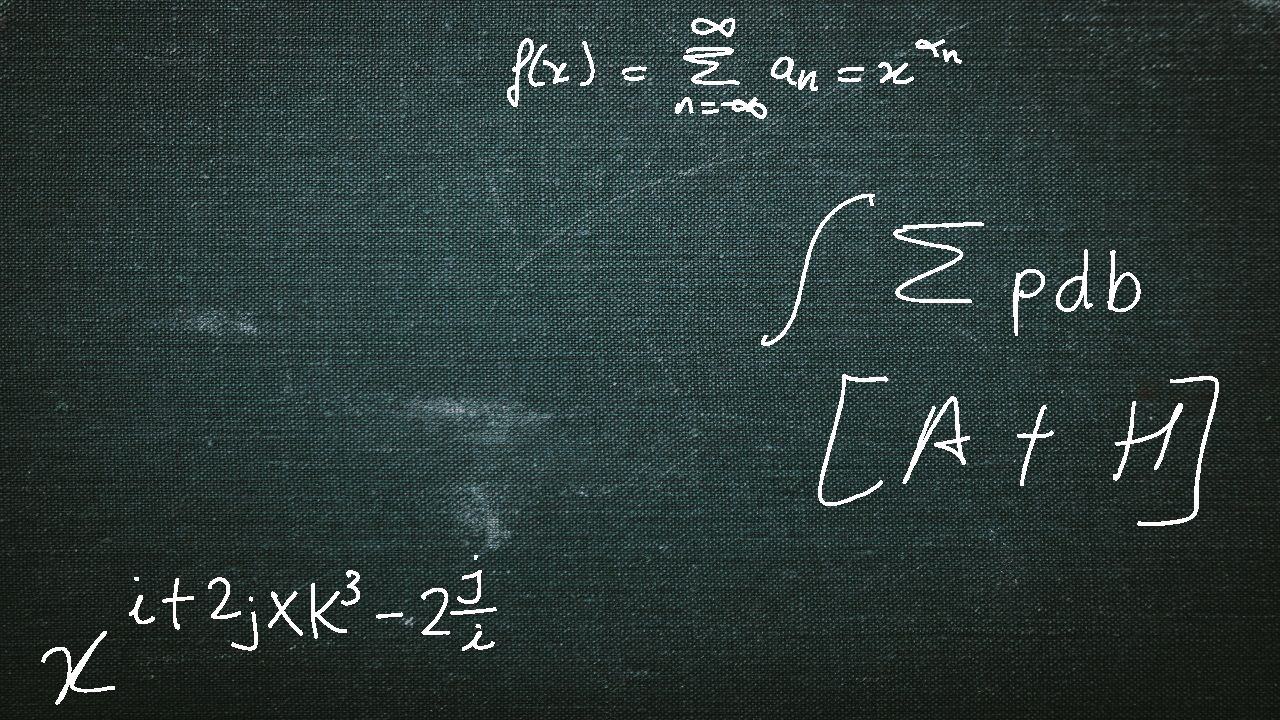 f(x) = ∑_{n=-∞}^{∞} a_n = x^{α_n}
∫ ∑ pdb
[A + H]
x^{i+2jxk^3-2\frac{j}{i}}